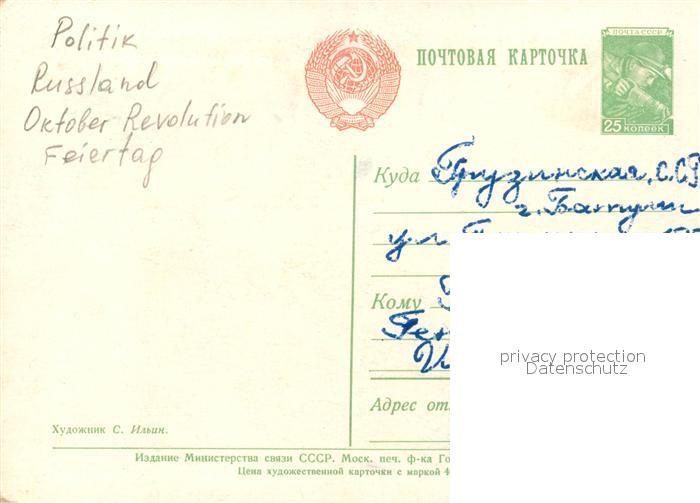 Politik
Russland
Oktober Revolution
Feiertag
ПОЧТОВАЯ КАРТОЧКА
ПОЧТА СССР
25 КОПЕЕК
Куда Грузинская, ССР
г. Батуми
ул.
Кому
privacy protection
Datenschutz
Адрес от
Художник С. Ильин.
Издание Министерства связи СССР. Моск. печ. ф-ка Го
Цена художественной карточки с маркой 4